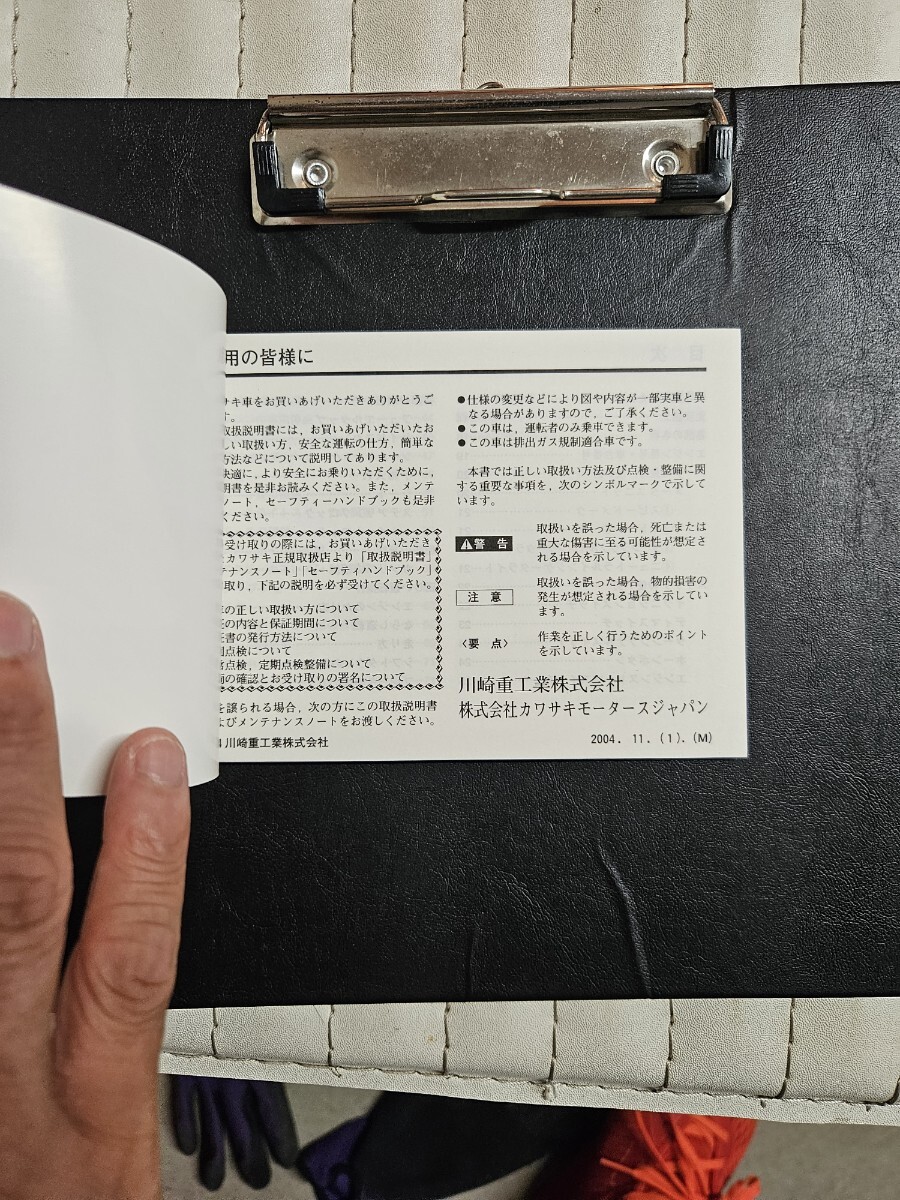 用の皆様に
サキ車をお買いあげいただきありがとうご
す。
取扱説明書には，お買いあげいただいたお
しい取扱い方，安全な運転の仕方，簡単な
方法などについて説明してあります。
快適に，より安全にお乗りいただくために，
明書を是非お読みください。また，メンテ
ノート，セーフティーハンドブックも是非
ください。
受け取りの際には，お買いあげいただき
カワサキ正規取扱店より「取扱説明書」
テナンスノート」「セーフティハンドブック」
取り，下記の説明を必ず受けてください。
の正しい取扱い方について
の内容と保証期間について
書の発行方法について
点検について
点検，定期点検整備について
の確認とお受け取りの署名について
を譲られる場合，次の方にこの取扱説明書
よびメンテナンスノートをお渡しください。
川崎重工業株式会社
●仕様の変更などにより図や内容が一部実車と異
なる場合がありますので，ご了承ください。
●この車は，運転者のみ乗車できます。
●この車は排出ガス規制適合車です。
本書では正しい取扱い方法及び点検・整備に関
する重要な事項を，次のシンボルマークで示して
います。
⚠警 告
取扱いを誤った場合，死亡または
重大な傷害に至る可能性が想定さ
れる場合を示しています。
注 意
取扱いを誤った場合，物的損害の
発生が想定される場合を示してい
ます。
〈要 点〉
作業を正しく行うためのポイント
を示しています。
川崎重工業株式会社
株式会社カワサキモータースジャパン
2004. 11. (1). (M)